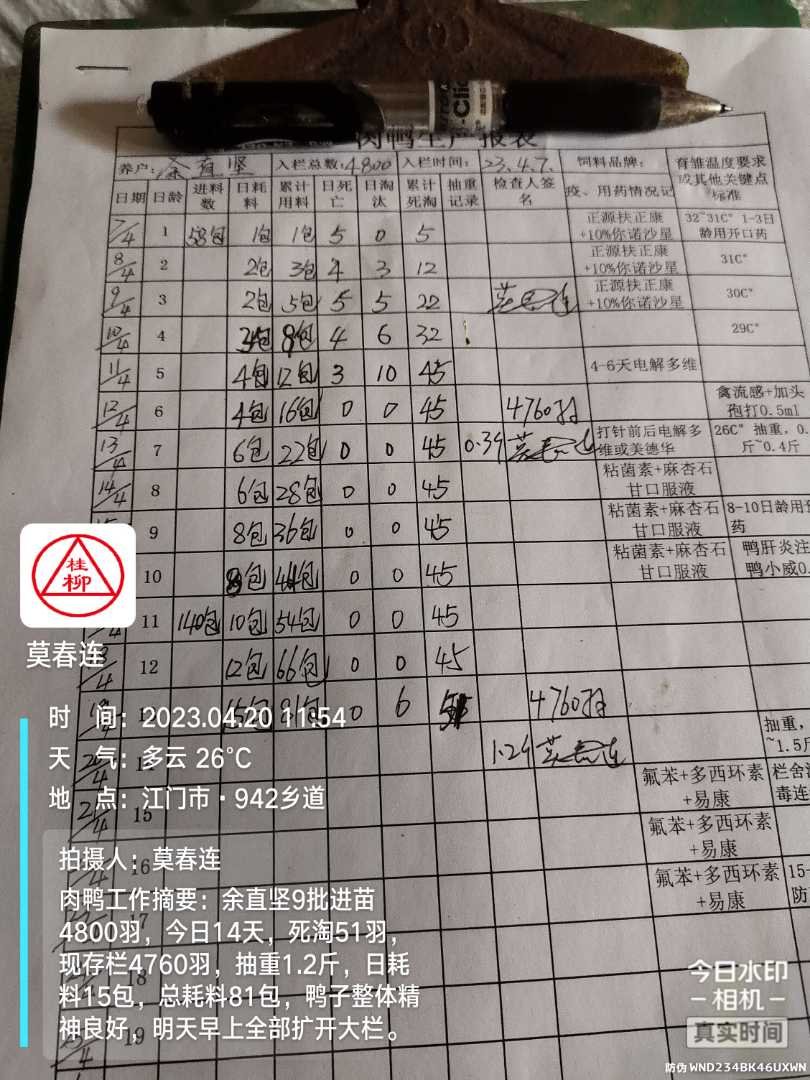 肉鸭生产报表
养户: 余直坚 入栏总数:4800 入栏时间: 23.4.7. 饲料品牌: 育雏温度要求或其他关键点标准
日期 日龄 进料数 日耗料 累计用料 日死亡 日淘汰 累计死淘 抽重记录 检查人签名 疫、用药情况记
7/4 1 58包 1包 1包 5 0 5 正源扶正康+10%你诺沙星 32~31C° 1-3日龄用开口药
8/4 2 2包 3包 4 3 12 正源扶正康+10%你诺沙星 31C°
9/4 3 2包 5包 5 5 22 莫春连 正源扶正康+10%你诺沙星 30C°
10/4 4 3包 8包 4 6 32 29C°
11/4 5 4包 12包 3 10 45 4-6天电解多维
12/4 6 4包 16包 0 0 45 4760羽 禽流感+加头孢打0.5ml
13/4 7 6包 22包 0 0 45 0.39 莫春连 打针前后电解多维或美德华 26C° 抽重,0.斤~0.4斤
14/4 8 6包 28包 0 0 45 粘菌素+麻杏石甘口服液
9 8包 36包 0 0 45 粘菌素+麻杏石甘口服液 8-10日龄用药
10 8包 44包 0 0 45 粘菌素+麻杏石甘口服液 鸭肝炎注 鸭小威0.
11 140包 10包 54包 0 0 45
12 12包 66包 0 0 45
15包 81包 0 6 51 4760羽
1.29 莫春连 抽重,~1.5斤
15 氟苯+多西环素+易康 栏舍 毒连
16 氟苯+多西环素+易康
17 氟苯+多西环素+易康 15- 防
18
19
桂柳
莫春连
时 间: 2023.04.20 11:54
天 气: 多云 26℃
地 点: 江门市·942乡道
拍摄人: 莫春连
肉鸭工作摘要: 余直坚9批进苗
4800羽，今日14天，死淘51羽，
现存栏4760羽，抽重1.2斤，日耗
料15包，总耗料81包，鸭子整体精
神良好，明天早上全部扩开大栏。
今日水印
相机
真实时间
防伪 WND234BK46UXWN